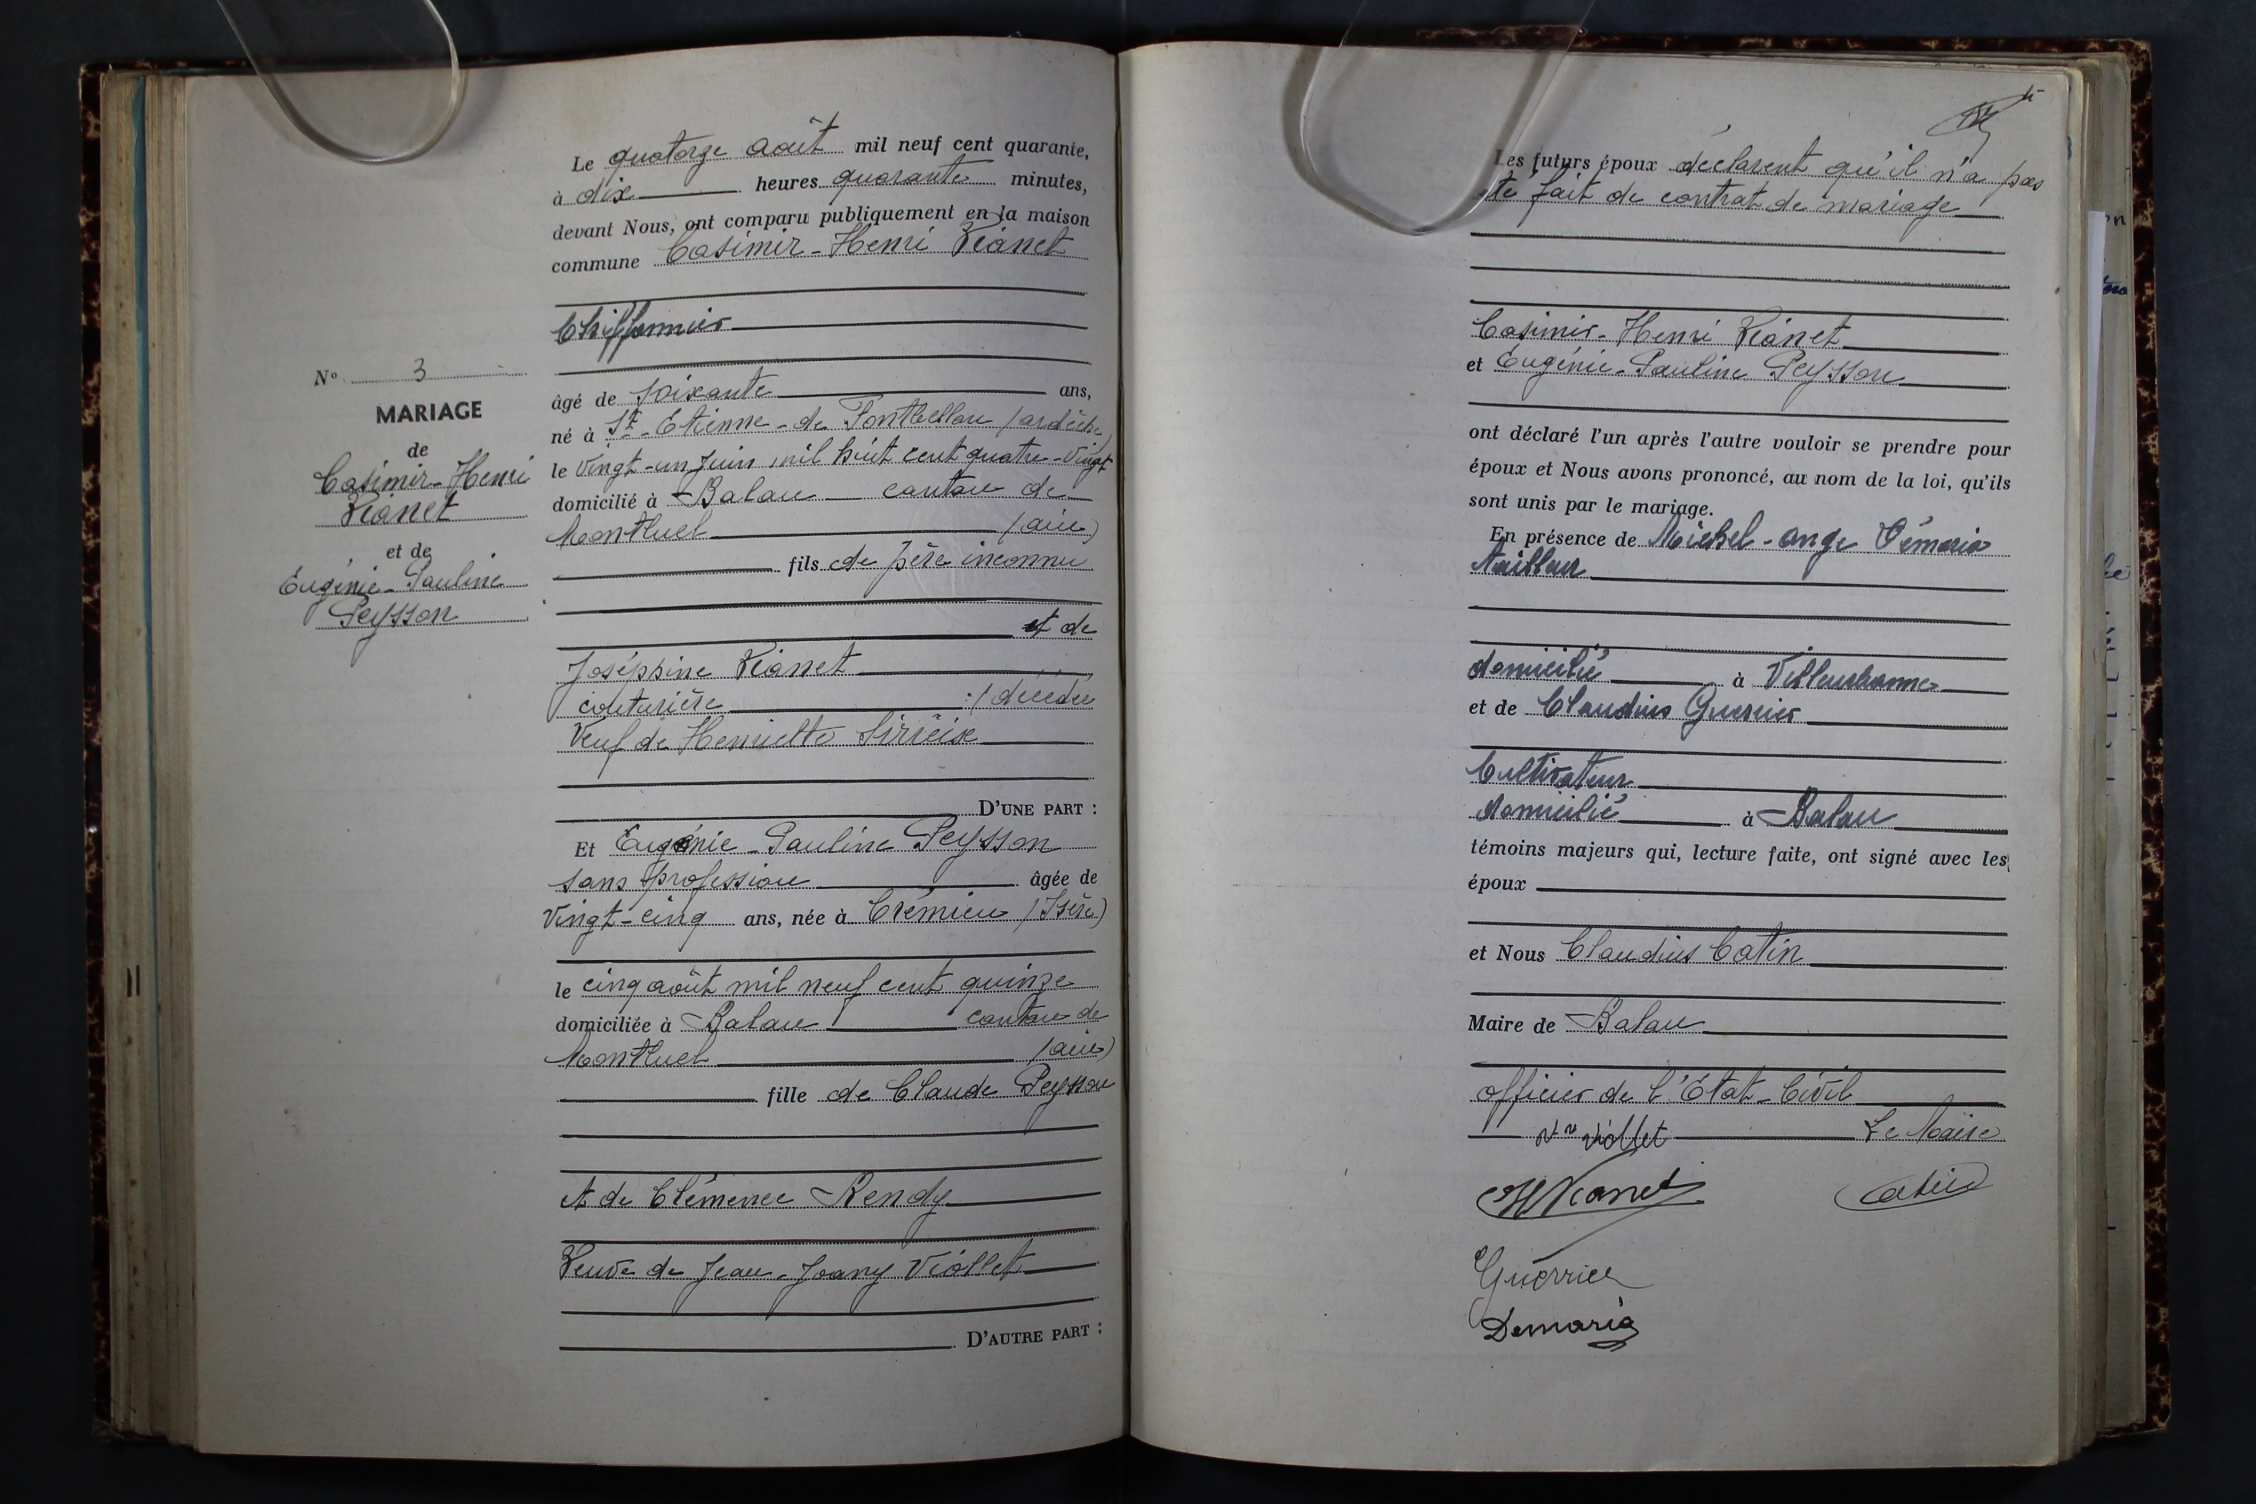 N° 3
MARIAGE
de
Casimir-Henri
Vianet
et de
Eugénie-Pauline
Peysson
Le quatorze août mil neuf cent quarante,
à dix heures quarante minutes,
devant Nous, ont comparu publiquement en la maison
commune Casimir-Henri Vianet
Chiffonnier
âgé de soixante ans,
né à St-Etienne-de Fontbellon (ardèche)
le vingt-un juin mil huit cent quatre-vingt
domicilié à Balan canton de
Montluel (ain)
fils de père inconnu
et de
Joséphine Vianet
couturière décédée
Veuf de Henriette
D'UNE PART :
Et Eugénie-Pauline Peysson
sans profession âgée de
vingt-cinq ans, née à Crémieu (Isère)
le cinq août mil neuf cent quinze
domiciliée à Balan canton de
Montluel (ain)
fille de Claude Peysson
et de Clémence Rendy
Veuve de Jean-Joany Viollet
D'AUTRE PART :
Les futurs époux déclarent qu'il n'a pas
été fait de contrat de mariage
Casimir-Henri Vianet
et Eugénie-Pauline Peysson
ont déclaré l'un après l'autre vouloir se prendre pour
époux et Nous avons prononcé, au nom de la loi, qu'ils
sont unis par le mariage.
En présence de Michel-ange Démaria
tailleur
domicilié à Villeurbanne
et de Claudius Guerrier
Cultivateur
domicilié à Balan
témoins majeurs qui, lecture faite, ont signé avec les
époux
et Nous Claudius Catin
Maire de Balan
officier de l'État-Civil
Vve Viollet Le Maire
H Vianet Catin
Guerrier
Demaria